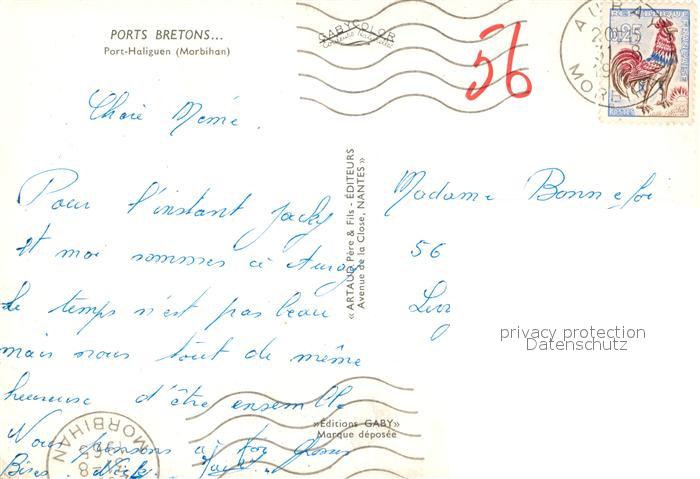 PORTS BRETONS...
Port-Haliguen (Morbihan)
GABYCOLOR
56
AURAY
MORBIHAN
0,25
Chère Mémé
Pour l'instant Jacky
et moi sommes à Auray
le temps n'est pas beau
mais nous tout de même
heureuse d'être ensemble
Nous pensons à toi Gros
Bises.
« ARTAUD Père & Fils - ÉDITEURS
Avenue de la Close, NANTES »
Madame Bonnefoi
56
»Editions GABY»
Marque déposée
MORBIHAN
privacy protection
Datenschutz